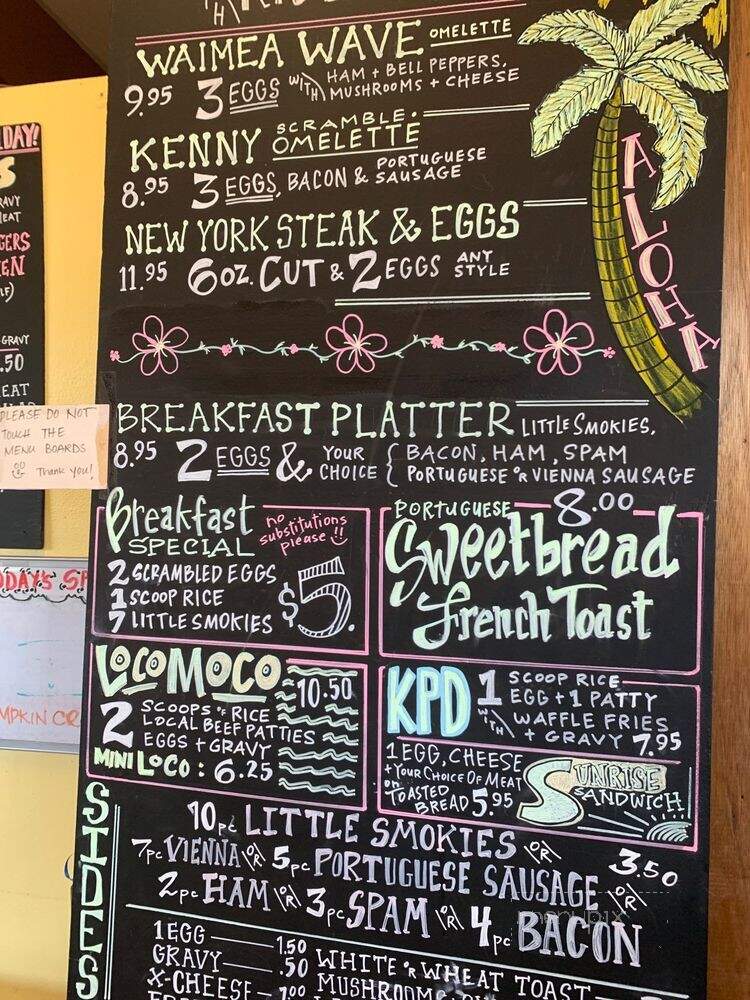 WAIMEA WAVE OMELETTE
9.95 3 EGGS WITH HAM + BELL PEPPERS, MUSHROOMS + CHEESE
KENNY SCRAMBLE. OMELETTE
8.95 3 EGGS, BACON & PORTUGUESE SAUSAGE
NEW YORK STEAK & EGGS
11.95 6 OZ. CUT & 2 EGGS ANY STYLE
ALOHA
BREAKFAST PLATTER LITTLE SMOKIES,
8.95 2 EGGS & YOUR CHOICE { BACON, HAM, SPAM
PORTUGUESE OR VIENNA SAUSAGE
Breakfast
SPECIAL
no substitutions please !!
2 SCRAMBLED EGGS
1 SCOOP RICE
7 LITTLE SMOKIES
$5.
PORTUGUESE 8.00
Sweetbread
French Toast
LOCO MOCO 10.50
2 SCOOPS OF RICE
LOCAL BEEF PATTIES
EGGS + GRAVY
MINI LOCO : 6.25
KPD 1 SCOOP RICE
EGG + 1 PATTY
WITH WAFFLE FRIES
+ GRAVY 7.95
1 EGG, CHEESE
+ YOUR CHOICE OF MEAT
ON TOASTED
BREAD 5.95
SUNRISE
SANDWICH
SIDES
10pc LITTLE SMOKIES OR 3.50
7pc VIENNA OR 5pc PORTUGUESE SAUSAGE OR
2pc HAM OR 3pc SPAM OR 4pc BACON
1 EGG 1.50
GRAVY .50
X-CHEESE 1.00
WHITE OR WHEAT TOAST
MUSHROOMS
DAY!
S
RAVY
EAT
GERS
EN
LF)
GRAVY
.50
EAT
PLEASE DO NOT
TOUCH THE
MENU BOARDS
Thank you!
ODAY'S SP
MPKIN CR
menupix